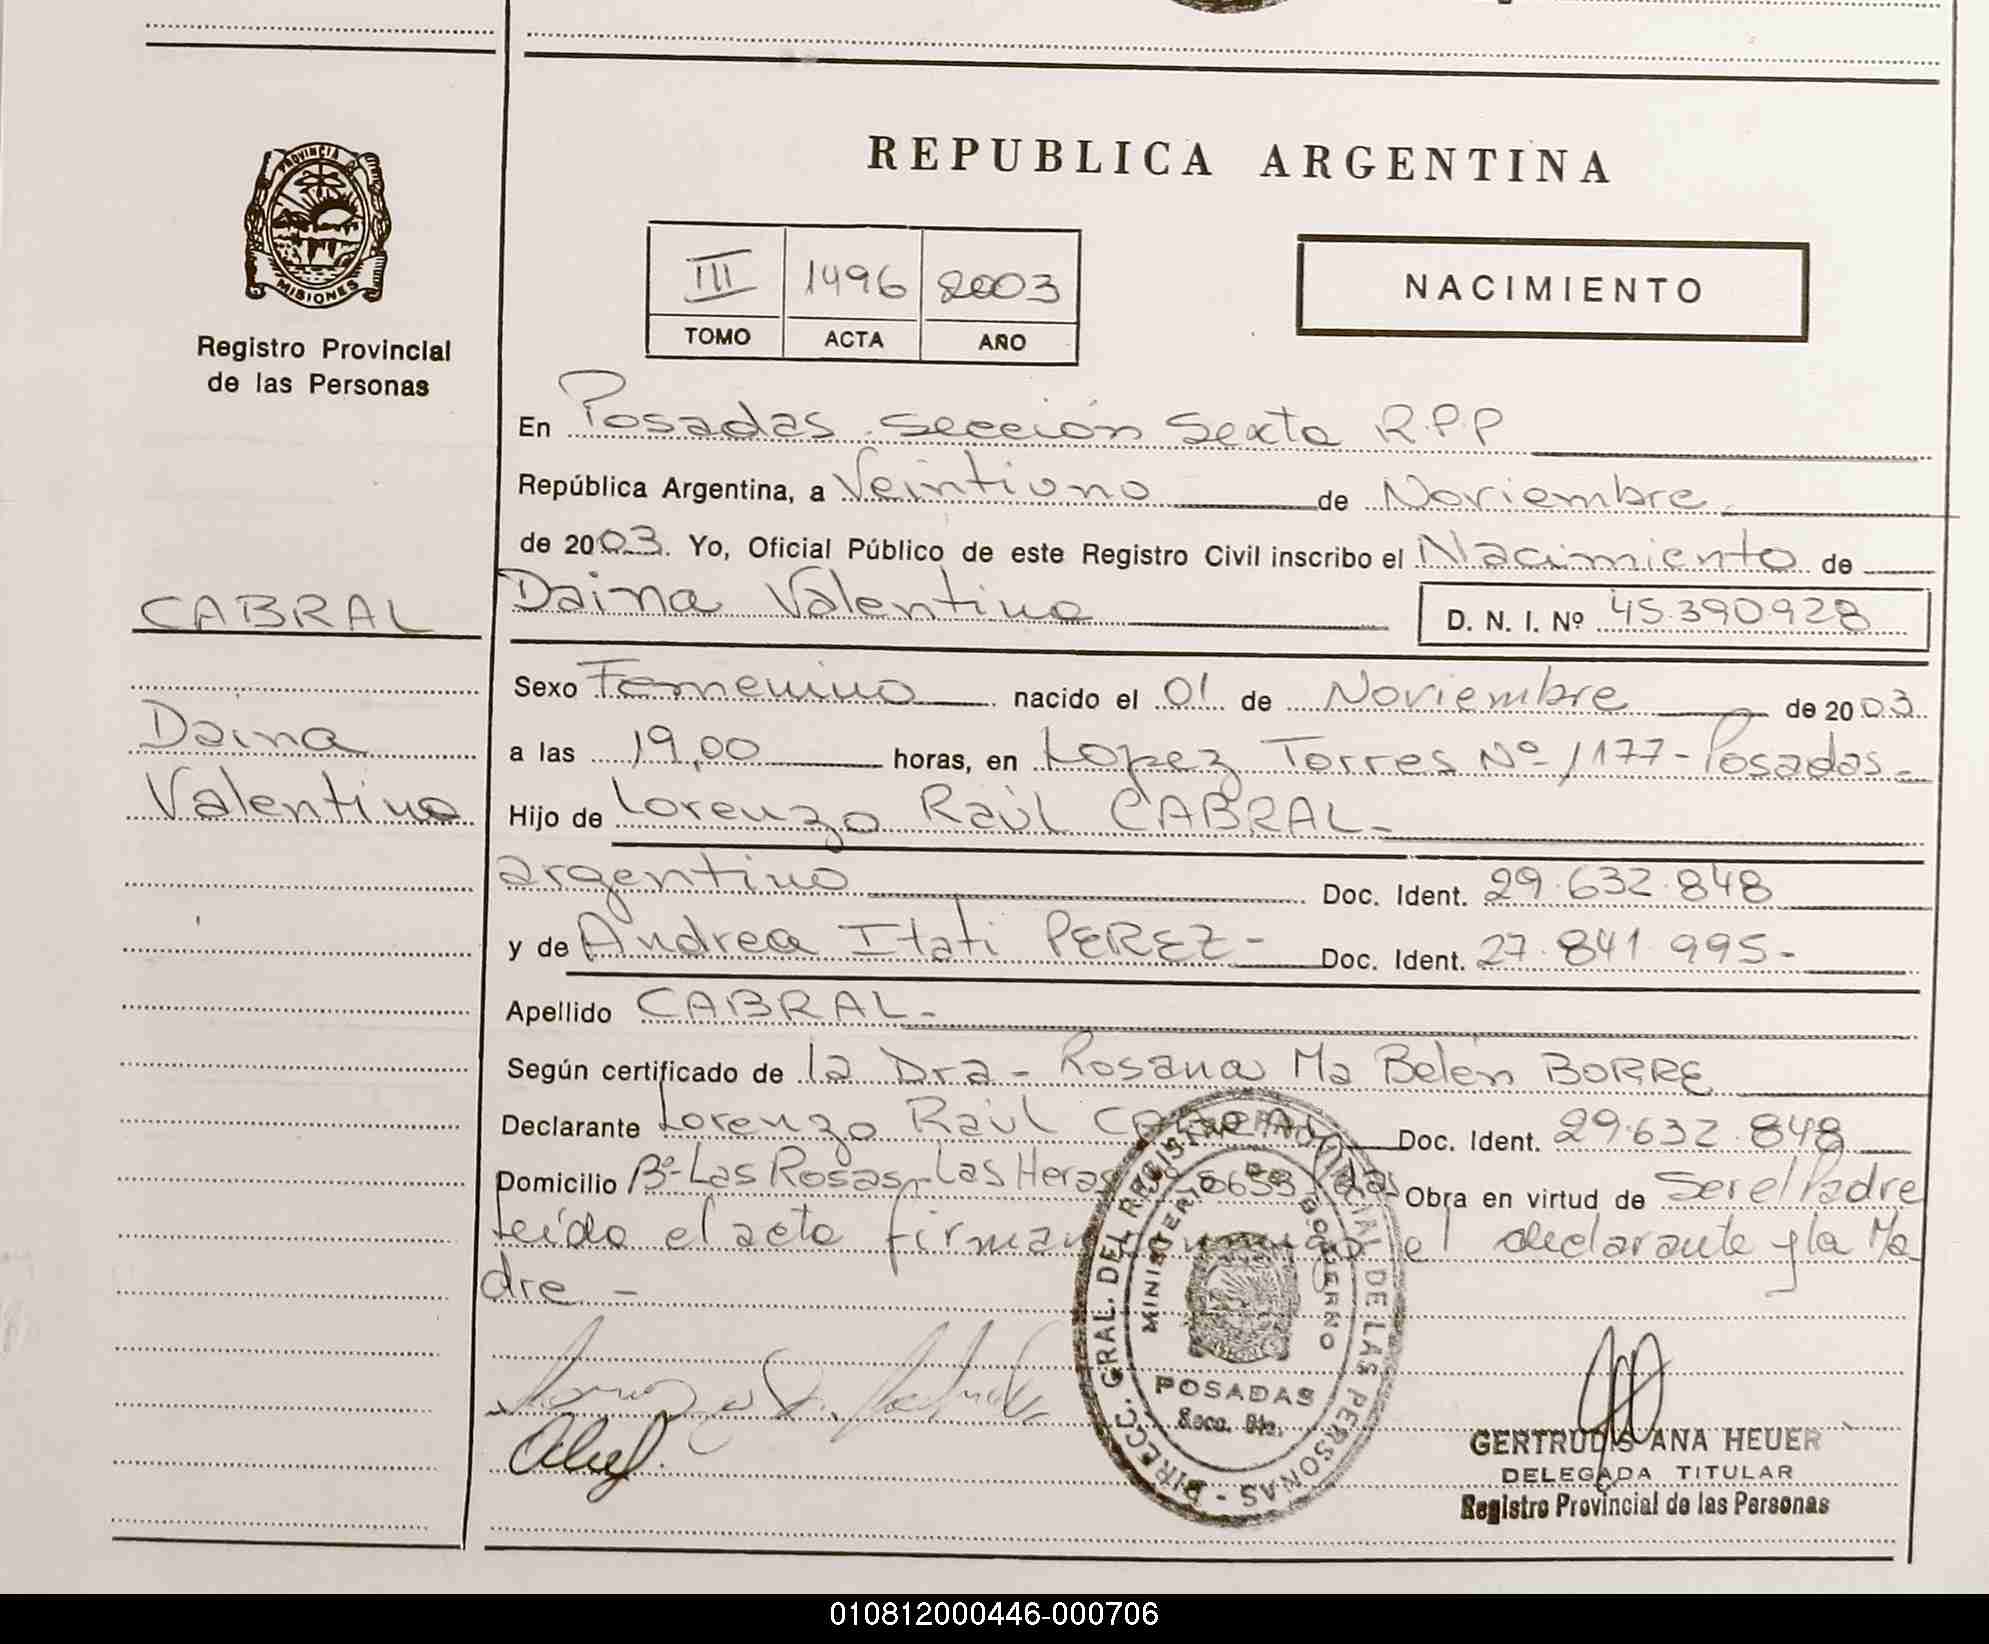 PROVINCIA DE
MISIONES
Registro Provincial
de las Personas
CABRAL
Daina
Valentina
REPUBLICA ARGENTINA
III 1496 2003
TOMO ACTA AÑO
NACIMIENTO
En Posadas Sección Sexta R.P.P
República Argentina, a Veintiuno de Noviembre
de 2003. Yo, Oficial Público de este Registro Civil inscribo el Nacimiento de
Daina Valentina D. N. I. Nº 45.390928
Sexo Femenino nacido el 01 de Noviembre de 2003
a las 19,00 horas, en Lopez Torres Nº 1177 - Posadas -
Hijo de Lorenzo Raúl CABRAL -
argentino Doc. Ident. 29.632.848
y de Andrea Itati PEREZ - Doc. Ident. 27.841.995 -
Apellido CABRAL -
Según certificado de la Dra - Rosana Ma Belén BORRE
Declarante Lorenzo Raúl CABRAL Doc. Ident. 29.632.848
Domicilio Bº - Las Rosas - Las Heras Nº 6653 Pdas Obra en virtud de Ser el Padre
leída el acta firman conmigo el declarante y la Ma
dre -
DIRECC. GRAL. DEL REGISTRO PROVINCIAL DE LAS PERSONAS -
MINISTERIO DE GOBIERNO
POSADAS
Secc. 6ta.
GERTRUDIS ANA HEUER
DELEGADA TITULAR
Registro Provincial de las Personas
010812000446-000706